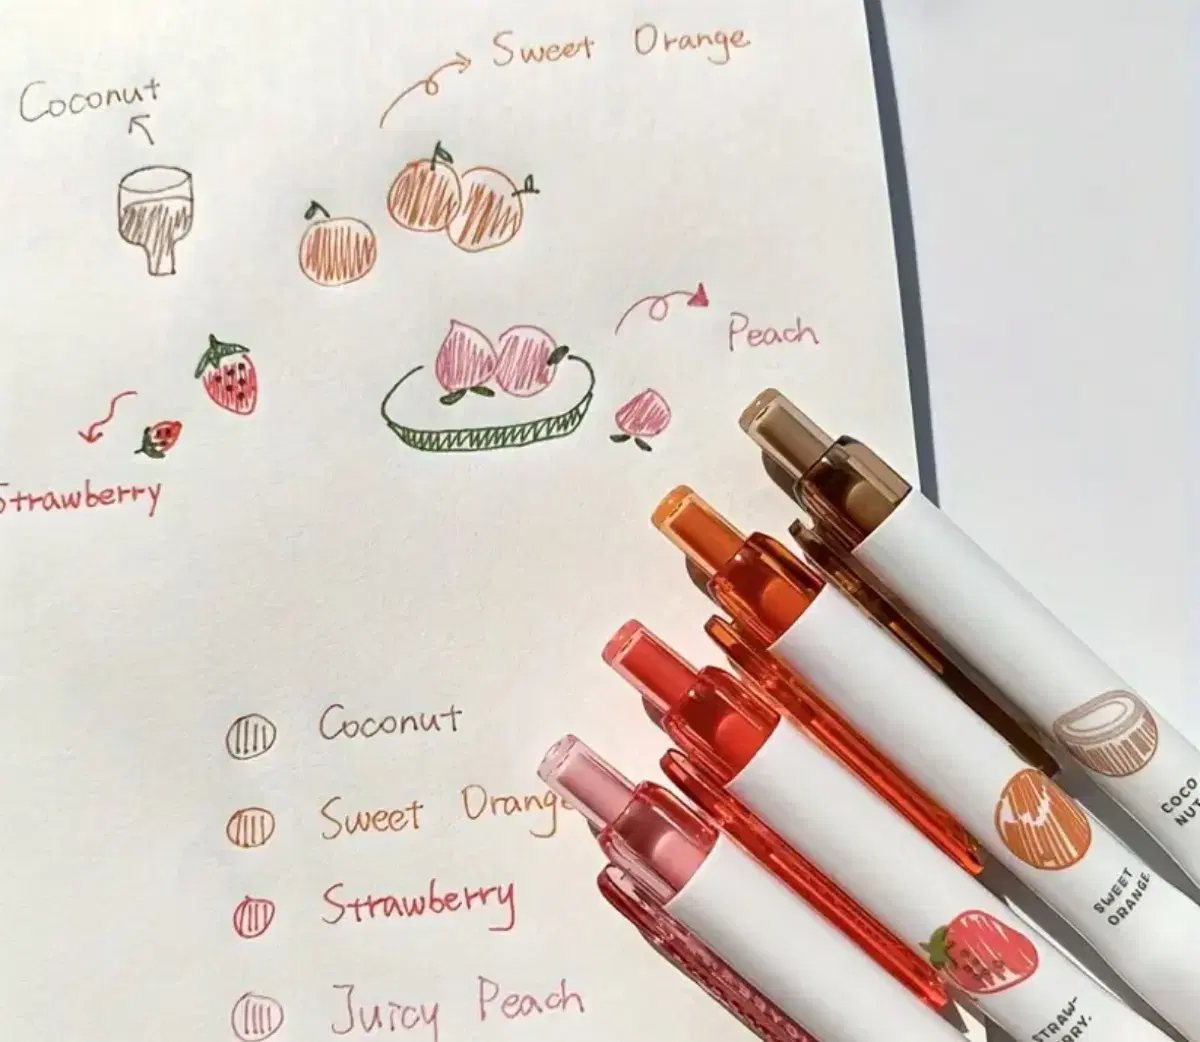 Sweet Orange
Coconut
Peach
Strawberry
Coconut
Sweet Orange
Strawberry
Juicy Peach
COCO
NUT
SWEET
ORANGE
STRAW-
RRY.